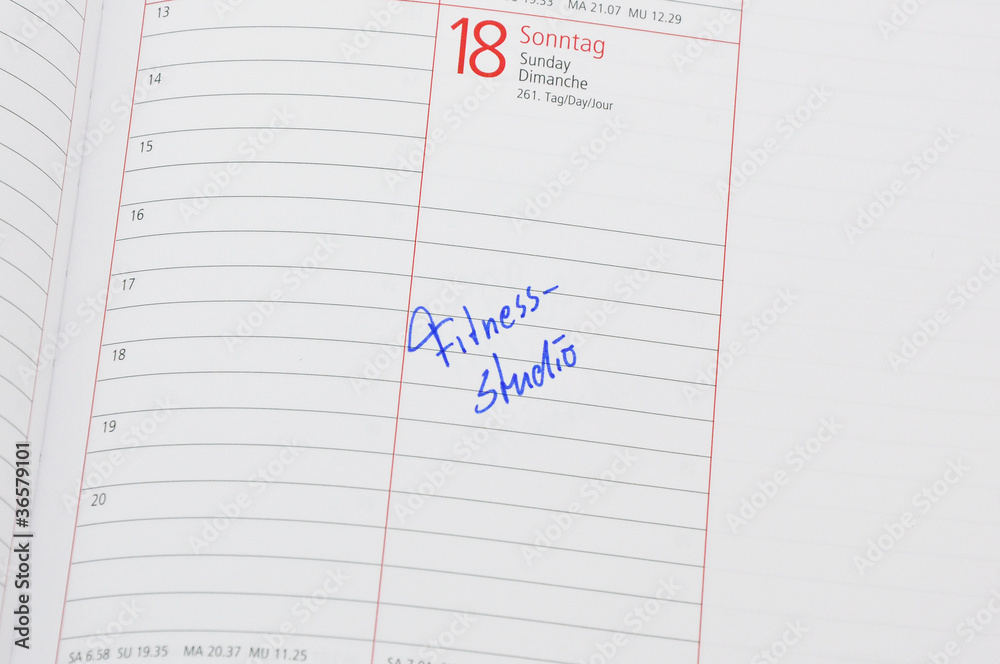 MA 21.07 MU 12.29
13
18 Sonntag
Sunday
Dimanche
261. Tag/Day/Jour
14
15
16
17
18
19
20
Fitness-
studio
SA 6.58 SU 19.35 MA 20.37 MU 11.25
Adobe Stock | #36579101